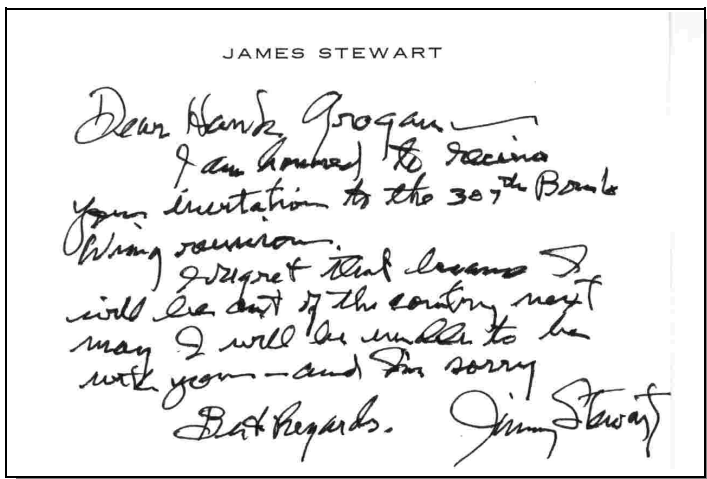 JAMES STEWART
Dear Hank Grogan —
I am honored to receive
your invitation to the 307th Bomb
Wing reunion.
I regret that because I
will be out of the country next
may I will be unable to be
with you — and I'm sorry
Best Regards. Jimmy Stewart